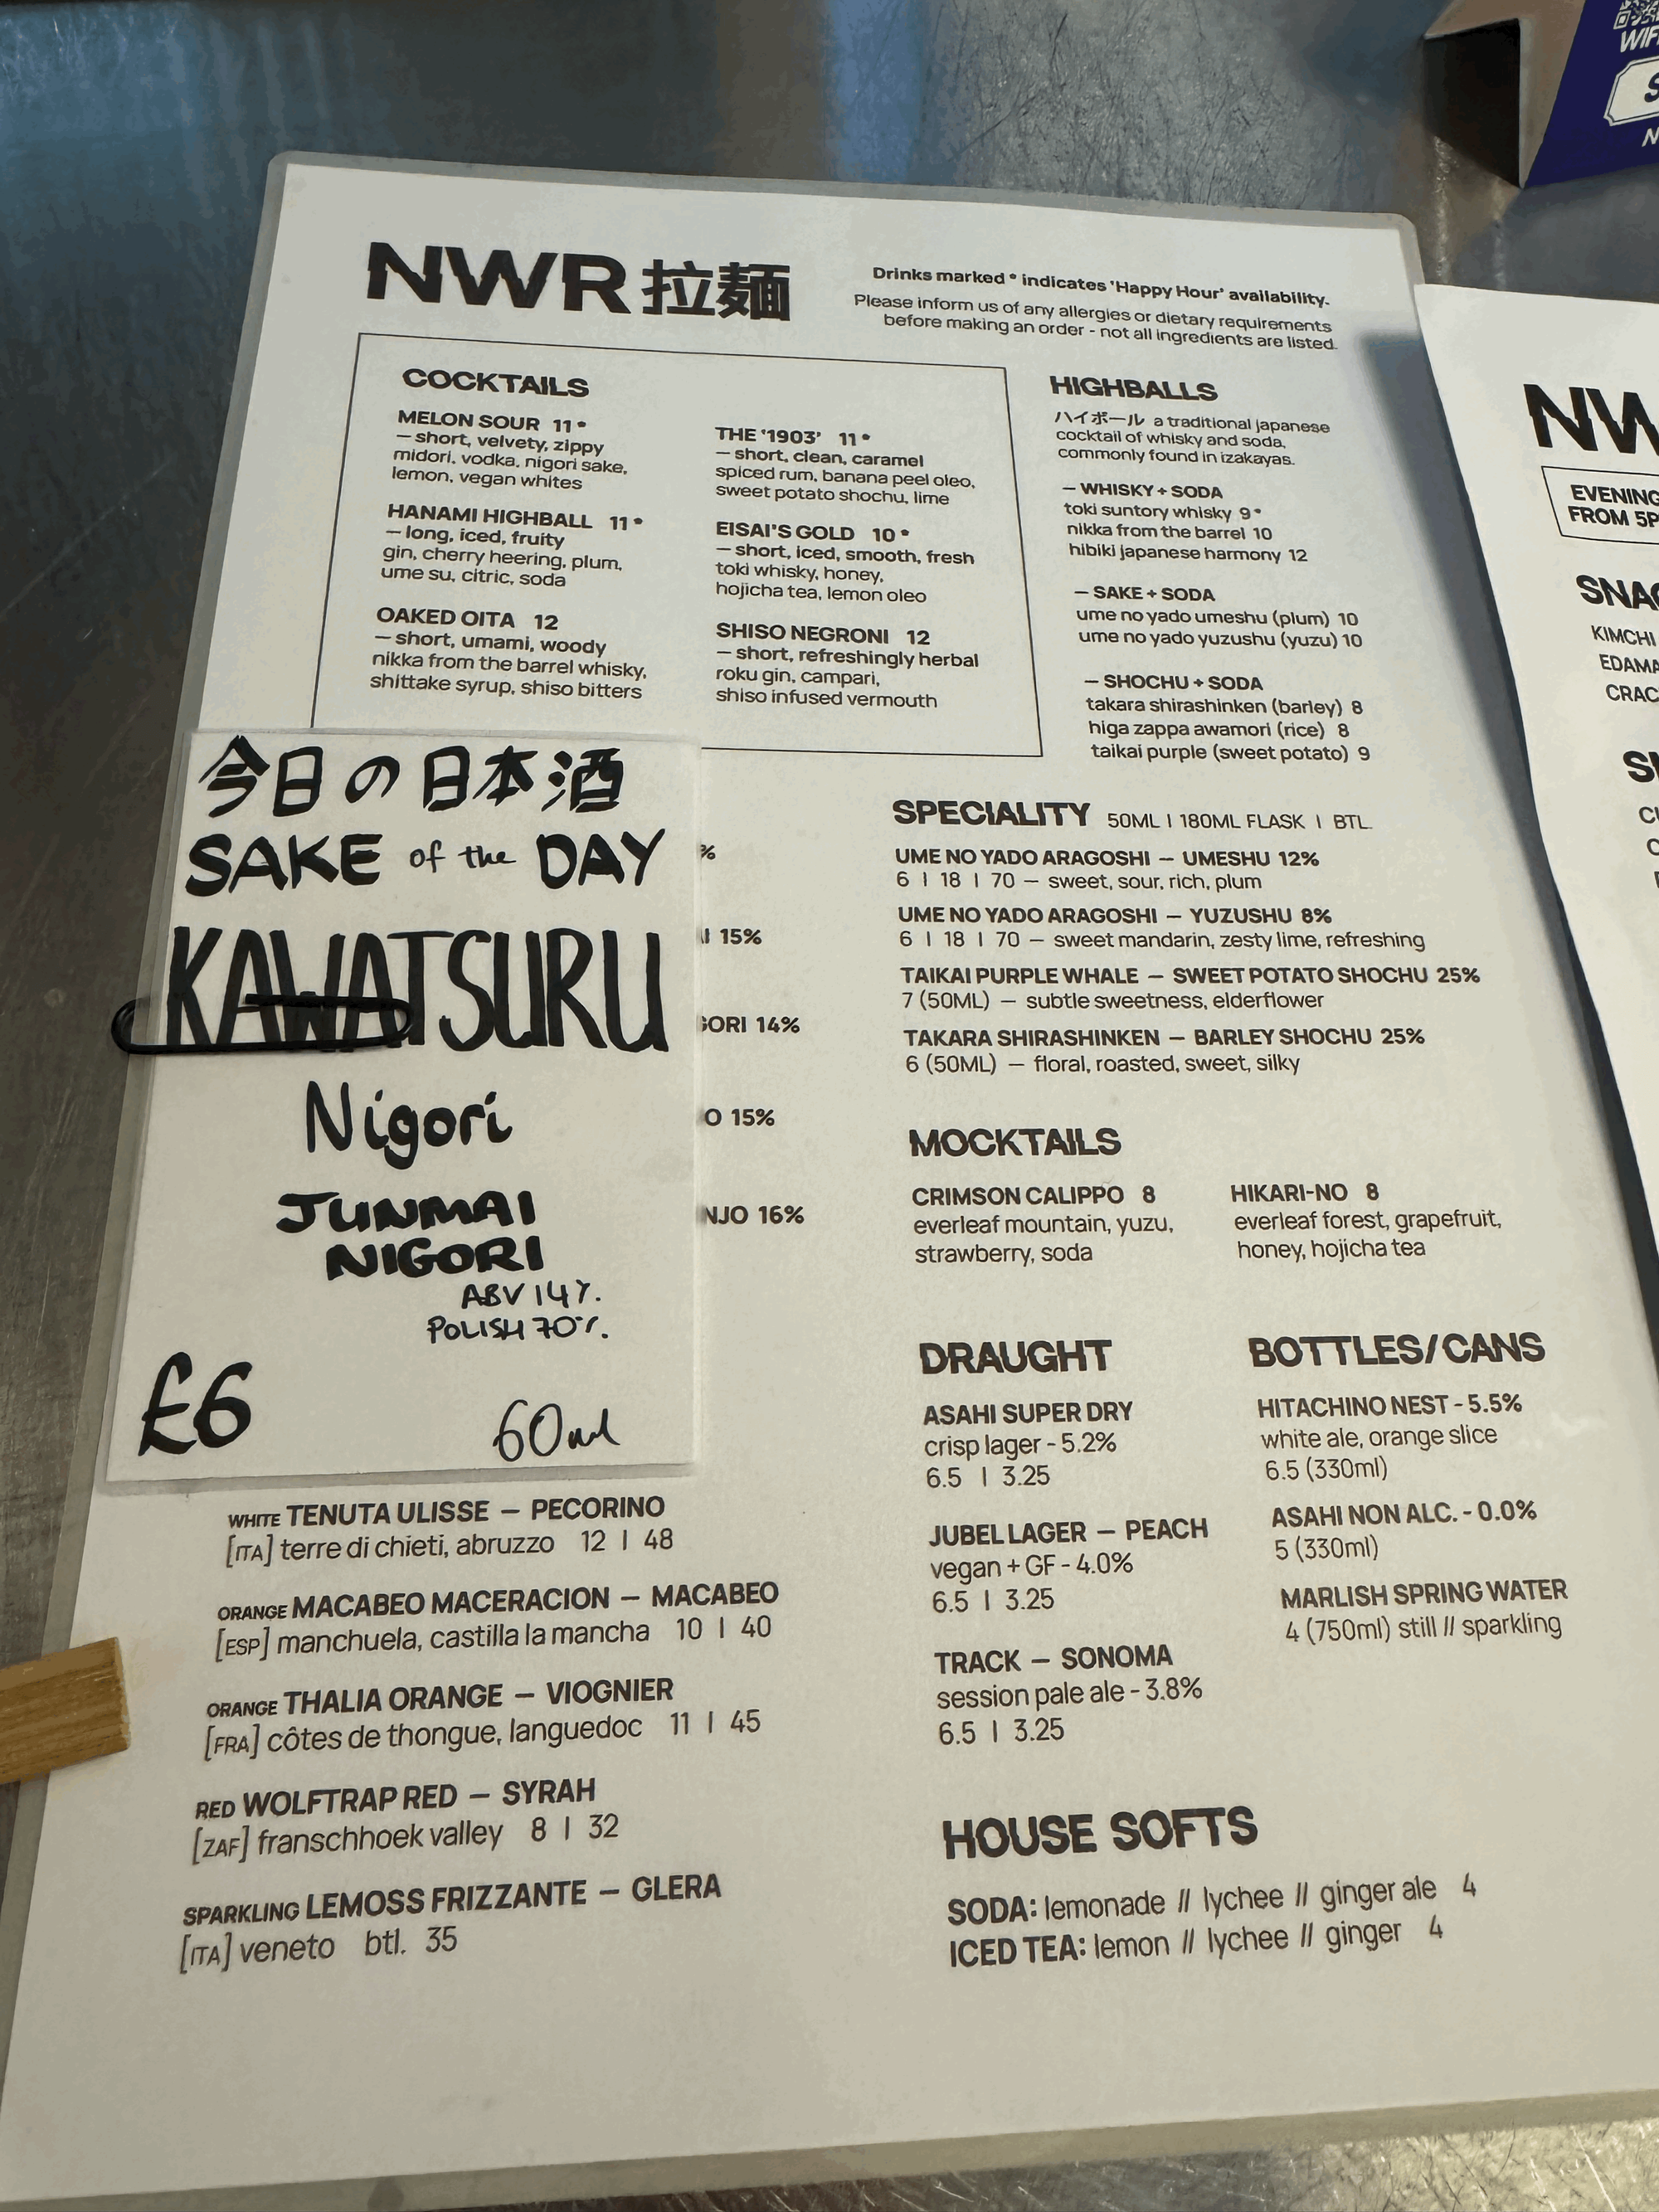 NWR 拉麺
Drinks marked * indicates 'Happy Hour' availability.
Please inform us of any allergies or dietary requirements
before making an order - not all ingredients are listed.
COCKTAILS
MELON SOUR 11*
— short, velvety, zippy
midori, vodka, nigori sake,
lemon, vegan whites
HANAMI HIGHBALL 11*
— long, iced, fruity
gin, cherry heering, plum,
ume su, citric, soda
OAKED OITA 12
— short, umami, woody
nikka from the barrel whisky,
shittake syrup, shiso bitters
THE '1903' 11*
— short, clean, caramel
spiced rum, banana peel oleo,
sweet potato shochu, lime
EISAI'S GOLD 10*
— short, iced, smooth, fresh
toki whisky, honey,
hojicha tea, lemon oleo
SHISO NEGRONI 12
— short, refreshingly herbal
roku gin, campari,
shiso infused vermouth
HIGHBALLS
ハイボール a traditional japanese
cocktail of whisky and soda,
commonly found in izakayas.
— WHISKY + SODA
toki suntory whisky 9*
nikka from the barrel 10
hibiki japanese harmony 12
— SAKE + SODA
ume no yado umeshu (plum) 10
ume no yado yuzushu (yuzu) 10
— SHOCHU + SODA
takara shirashinken (barley) 8
higa zappa awamori (rice) 8
taikai purple (sweet potato) 9
今日の日本酒
SAKE of the DAY
KAWATSURU
Nigori
JUNMAI
NIGORI
ABV 14%.
POLISH 70%.
£6
60ml
%
15%
GORI 14%
O 15%
NJO 16%
SPECIALITY 50ML | 180ML FLASK | BTL.
UME NO YADO ARAGOSHI — UMESHU 12%
6 | 18 | 70 — sweet, sour, rich, plum
UME NO YADO ARAGOSHI — YUZUSHU 8%
6 | 18 | 70 — sweet mandarin, zesty lime, refreshing
TAIKAI PURPLE WHALE — SWEET POTATO SHOCHU 25%
7 (50ML) — subtle sweetness, elderflower
TAKARA SHIRASHINKEN — BARLEY SHOCHU 25%
6 (50ML) — floral, roasted, sweet, silky
MOCKTAILS
CRIMSON CALIPPO 8
everleaf mountain, yuzu,
strawberry, soda
HIKARI-NO 8
everleaf forest, grapefruit,
honey, hojicha tea
WHITE TENUTA ULISSE — PECORINO
[ITA] terre di chieti, abruzzo 12 | 48
ORANGE MACABEO MACERACION — MACABEO
[ESP] manchuela, castilla la mancha 10 | 40
ORANGE THALIA ORANGE — VIOGNIER
[FRA] côtes de thongue, languedoc 11 | 45
RED WOLFTRAP RED — SYRAH
[ZAF] franschhoek valley 8 | 32
SPARKLING LEMOSS FRIZZANTE — GLERA
[ITA] veneto btl. 35
DRAUGHT
ASAHI SUPER DRY
crisp lager - 5.2%
6.5 | 3.25
JUBEL LAGER — PEACH
vegan + GF - 4.0%
6.5 | 3.25
TRACK — SONOMA
session pale ale - 3.8%
6.5 | 3.25
BOTTLES/CANS
HITACHINO NEST - 5.5%
white ale, orange slice
6.5 (330ml)
ASAHI NON ALC. - 0.0%
5 (330ml)
MARLISH SPRING WATER
4 (750ml) still // sparkling
HOUSE SOFTS
SODA: lemonade // lychee // ginger ale 4
ICED TEA: lemon // lychee // ginger 4
EVENING
FROM 5P
KIMCHI